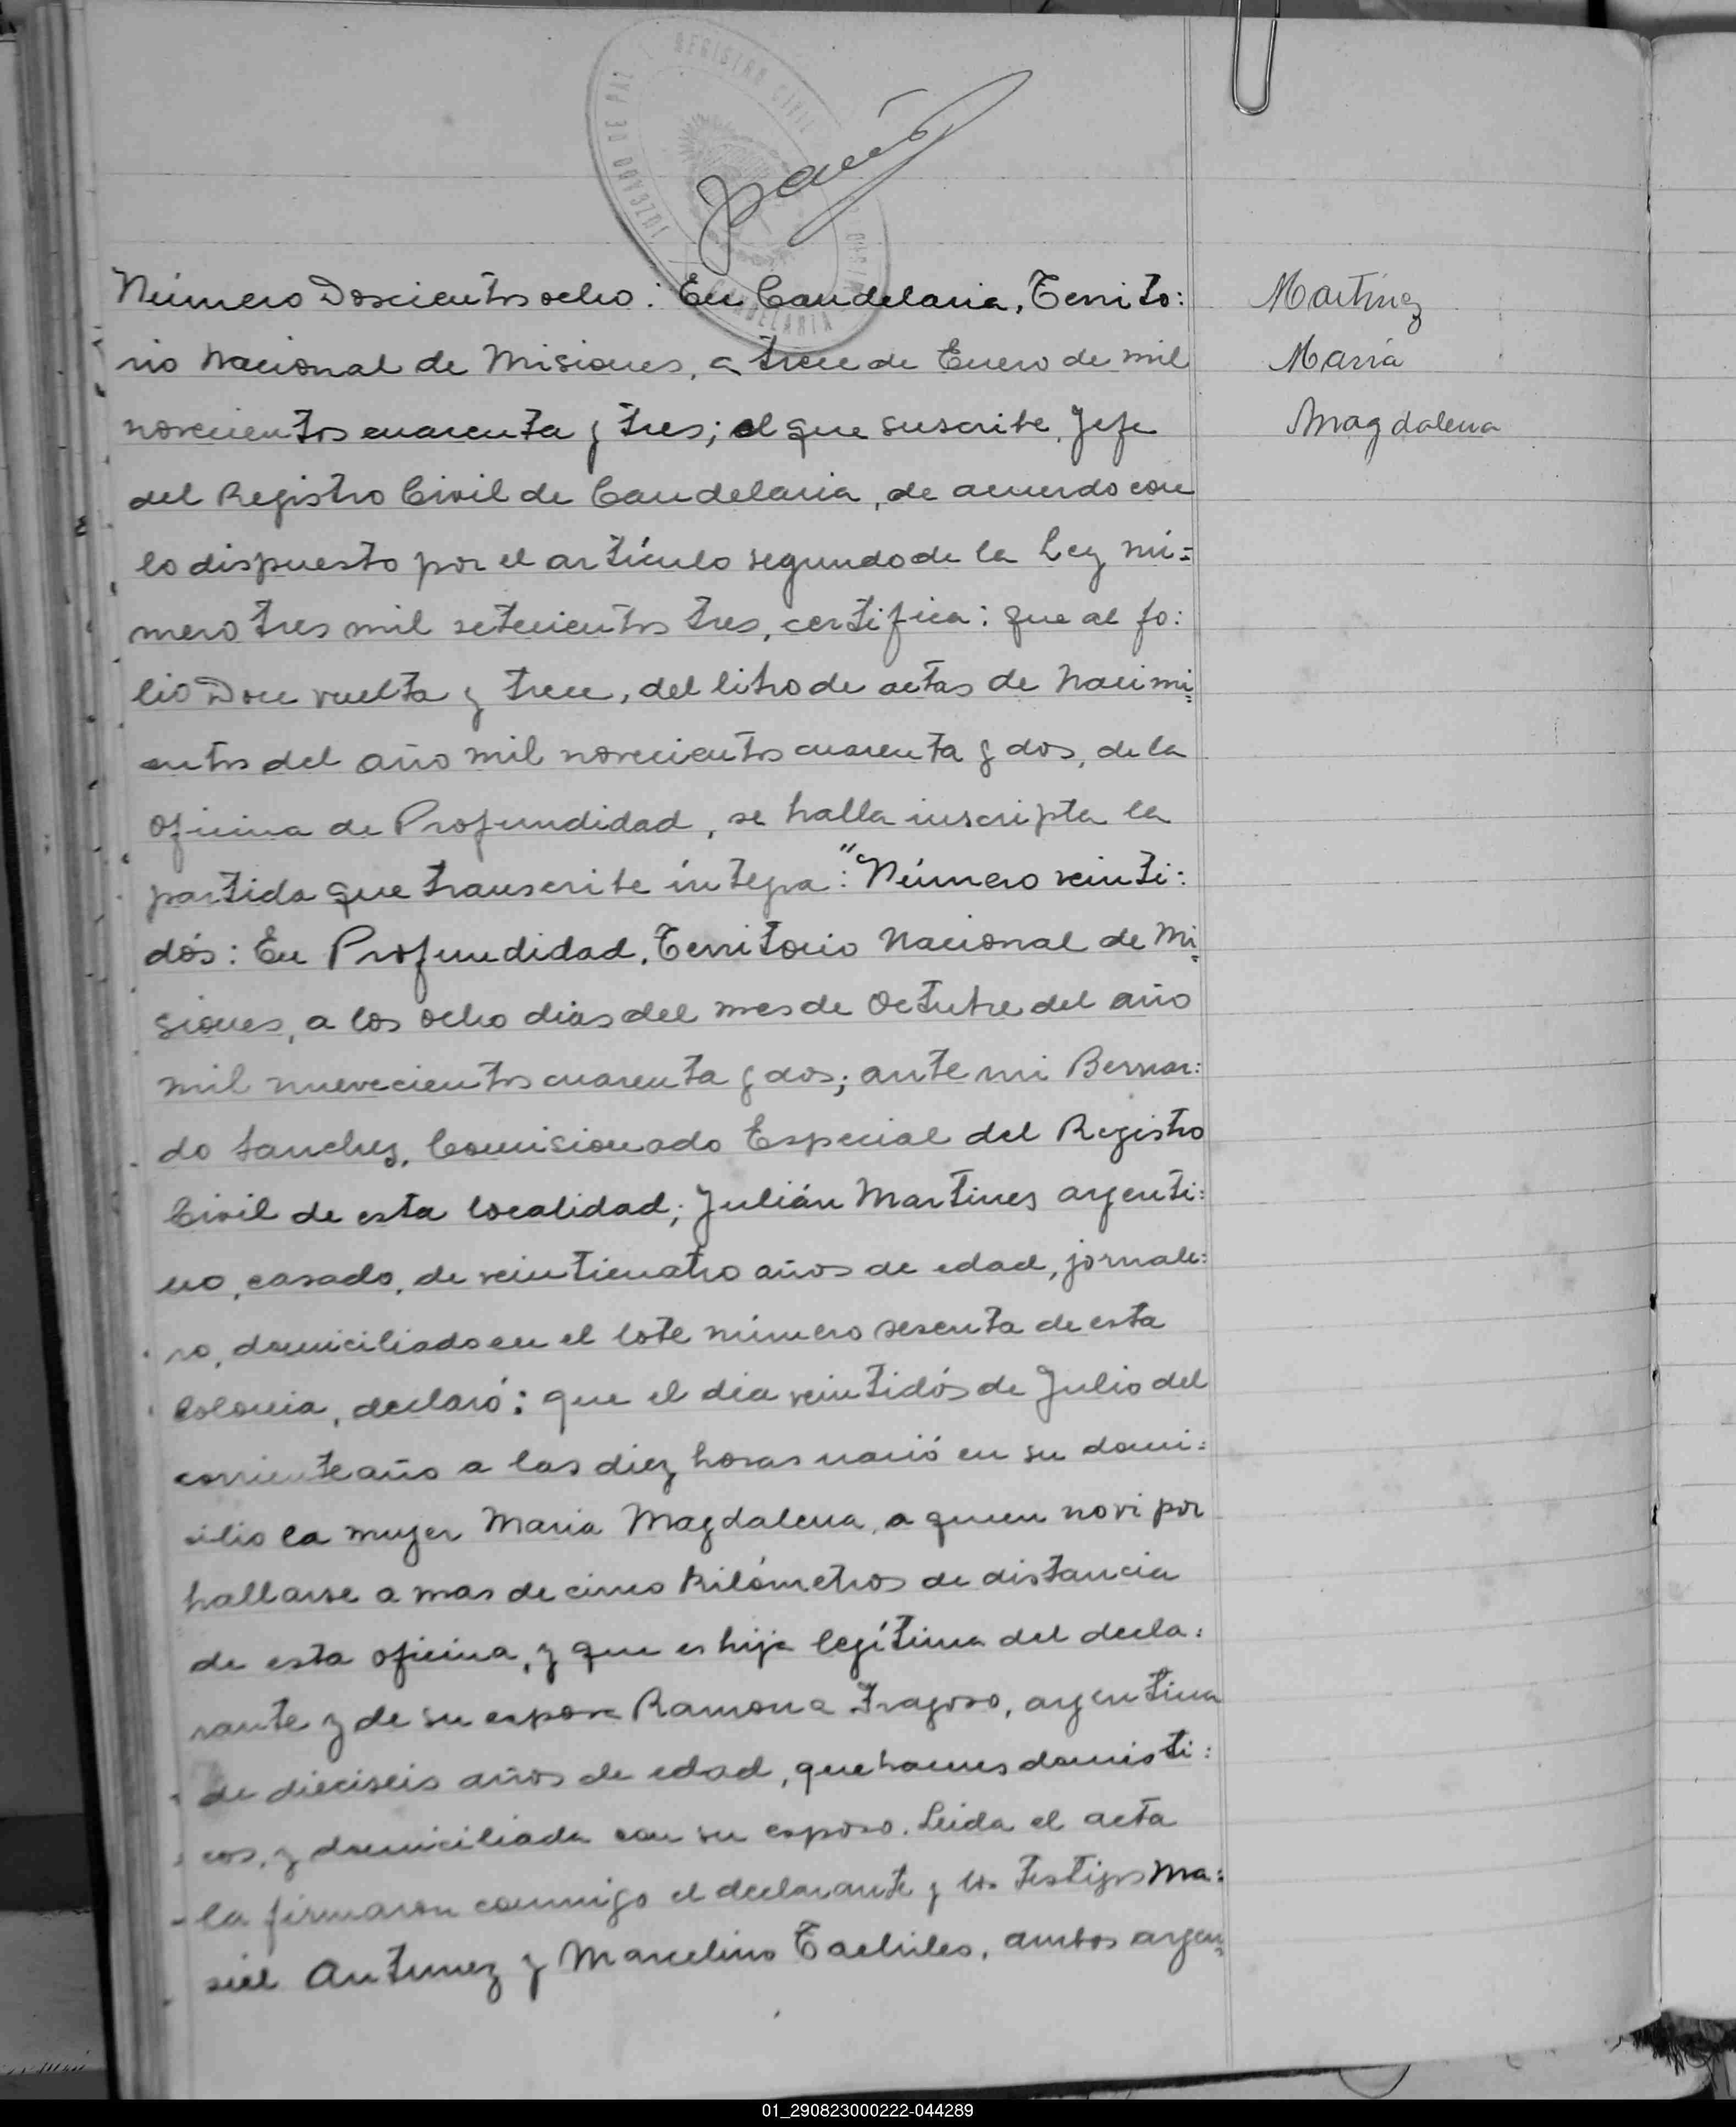 REGISTRO CIVIL
JUZGADO DE PAZ
CANDELARIA
Número Doscientos ocho: En Candelaria, Territo:
rio Nacional de Misiones, a trece de Enero de mil
novecientos cuarenta y tres; el que suscribe, Jefe
del Registro Civil de Candelaria, de acuerdo con
lo dispuesto por el artículo segundo de la Ley nú=
mero tres mil setecientos tres, certifica: que al fo:
lio Doce vuelta y trece, del libro de actas de Nacimi=
entos del año mil novecientos cuarenta y dos, de la
oficina de Profundidad, se halla inscripta la
partida que transcribe íntegra: "Número veinti:
dós: En Profundidad, Territorio Nacional de Mi=
siones, a los ocho dias del mes de Octubre del año
mil nuevecientos cuarenta y dos; ante mi Bernar:
do Sanchez, Comisionado Especial del Registro
Civil de esta localidad; Julián Martines argenti:
no, casado, de veinticuatro años de edad, jornale:
ro, domiciliado en el lote número sesenta de esta
Colonia, declaró: que el dia veintidós de Julio del
corriente año a las diez horas nació en su domi:
cilio la mujer Maria Magdalena, a quien no vi por
hallarse a mas de cinco Kilómetros de distancia
de esta oficina, y que es hija legítima del decla:
rante y de su esposa Ramona Fragoso, argentina
de dieciseis años de edad, quehaceres domésti:
cos, y domiciliada con su esposo. Leida el acta
la firmaron conmigo el declarante y los testigos Ma:
siel Antunez y Marcelino ambos argen=
Martínez
María
Magdalena
01_290823000222-044289